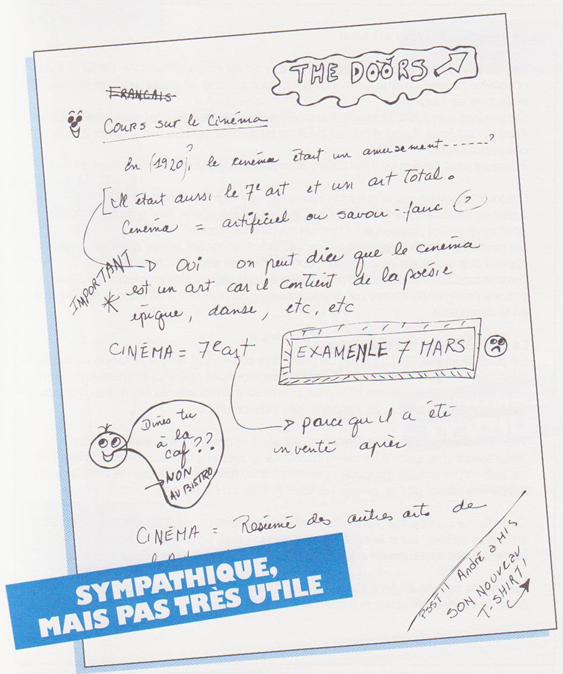 THE DOORS
FRANCAIS
Cours sur le Cinéma
En (1920)? le cinéma était un amusement------?
[Il était aussi le 7e art et un art Total.
Cinéma = artificiel ou savoir-faire (?)
IMPORTANT
Oui on peut dire que le cinéma
* est un art car il contient de la poésie
épique, danse, etc, etc
CINÉMA = 7e art
EXAMEN LE 7 MARS
parce qu'il a été
inventé après
Dines tu
à la
caf??
NON
AU BISTRO
CINÉMA = Résumé des autres arts de
PSST!! André a MIS
SON NOUVEAU
T-SHIRT!
SYMPATHIQUE,
MAIS PAS TRÈS UTILE